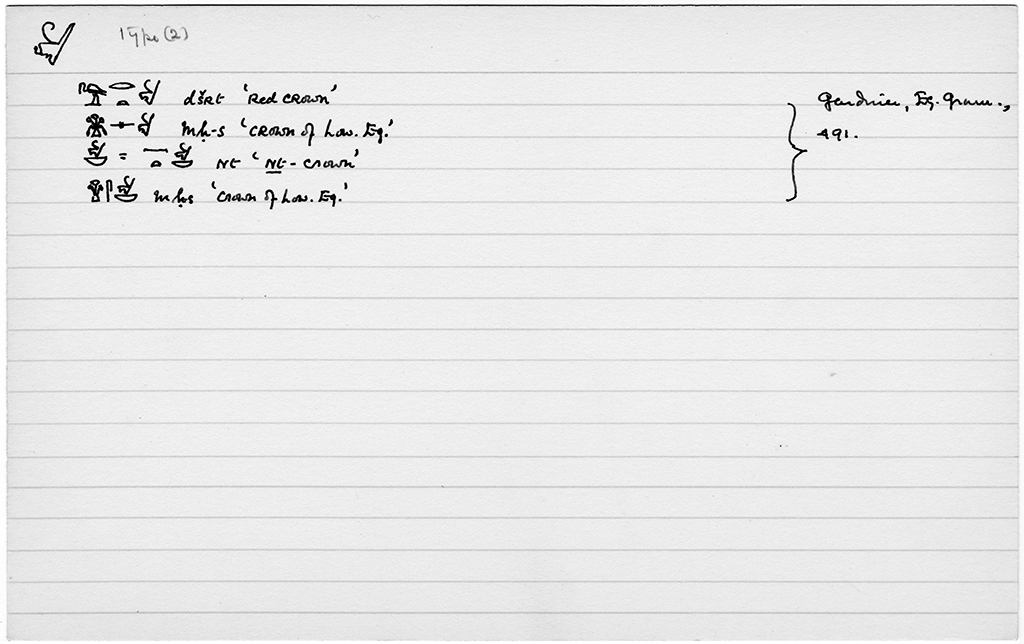 𓋔 Type (2)
𓅟𓂋𓏏𓋔 dšrt 'Red crown'
𓇉𓊃𓋔 mḥ-s 'crown of Low. Eg.'
𓋕 = 𓈖𓏏𓋕 Nt 'Nt-crown'
𓇉𓋴𓋕 mḥs 'crown of Low. Eg.'
Gardiner, Eg. Gram.,
491.